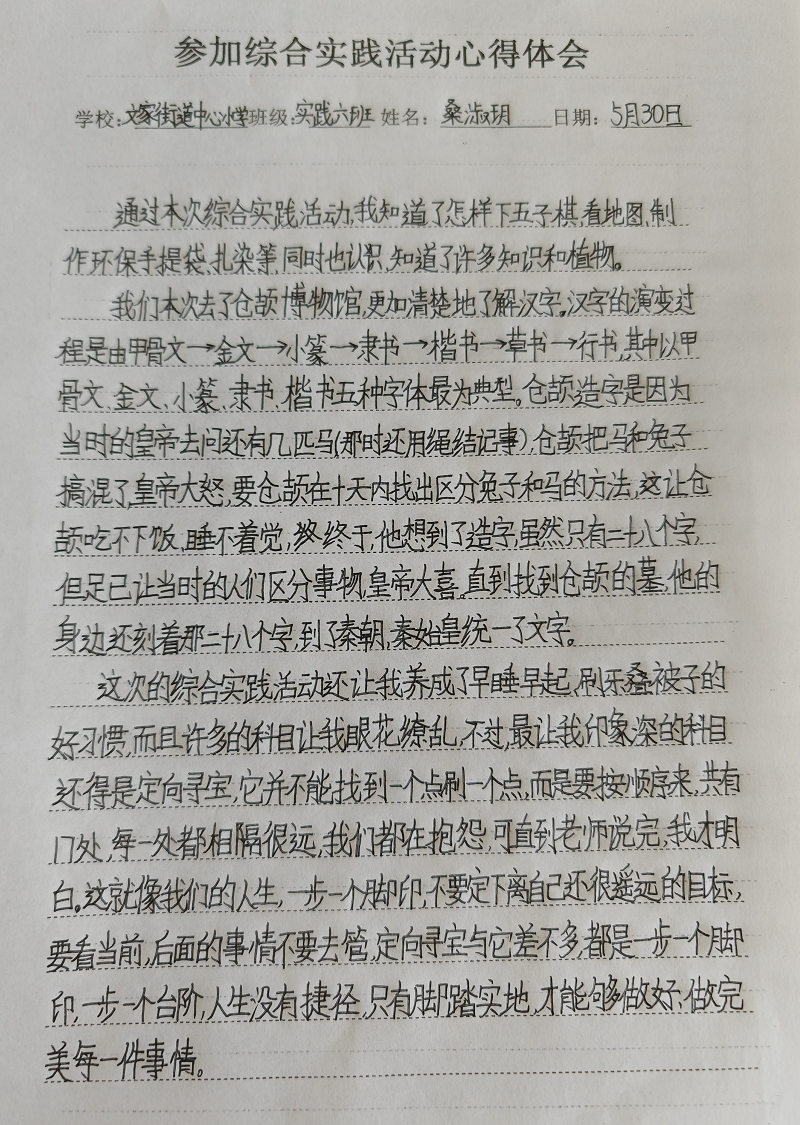 参加综合实践活动心得体会
学校:文家街道中心小学班级:实践六班 姓名:桑淑玥 日期:5月30日
通过本次综合实践活动,我知道了怎样下五子棋,看地图,制
作环保手提袋、扎染等,同时也认识,知道了许多知识和植物。
我们本次去了仓颉博物馆,更加清楚地了解汉字。汉字的演变过
程是由甲骨文→金文→小篆→隶书→楷书→草书→行书,其中以甲
骨文、金文、小篆、隶书、楷书五种字体最为典型。仓颉造字是因为
当时的皇帝去问还有几匹马(那时还用绳结记事),仓颉把马和兔子
搞混了,皇帝大怒,要仓颉在十天内找出区分兔子和马的方法,这让仓
颉吃不下饭,睡不着觉,终于,他想到了造字,虽然只有二十八个字,
但足已让当时的人们区分事物,皇帝大喜。直到找到仓颉的墓,他的
身边还刻着那二十八个字,到了秦朝,秦始皇统一了文字。
这次的综合实践活动还让我养成了早睡早起,刷牙叠被子的
好习惯,而且许多的科目让我眼花缭乱,不过,最让我印象深的科目
还得是定向寻宝,它并不能找到一个点刷一个点,而是要按顺序来,共有
17处,每一处都相隔很远,我们都在抱怨,可直到老师说完,我才明
白。这就像我们的人生,一步一个脚印,不要定下离自己还很遥远的目标,
要看当前,后面的事情不要去管,定向寻宝与它差不多,都是一步一个脚
印,一步一个台阶,人生没有捷径,只有脚踏实地,才能够做好、做完
美每一件事情。